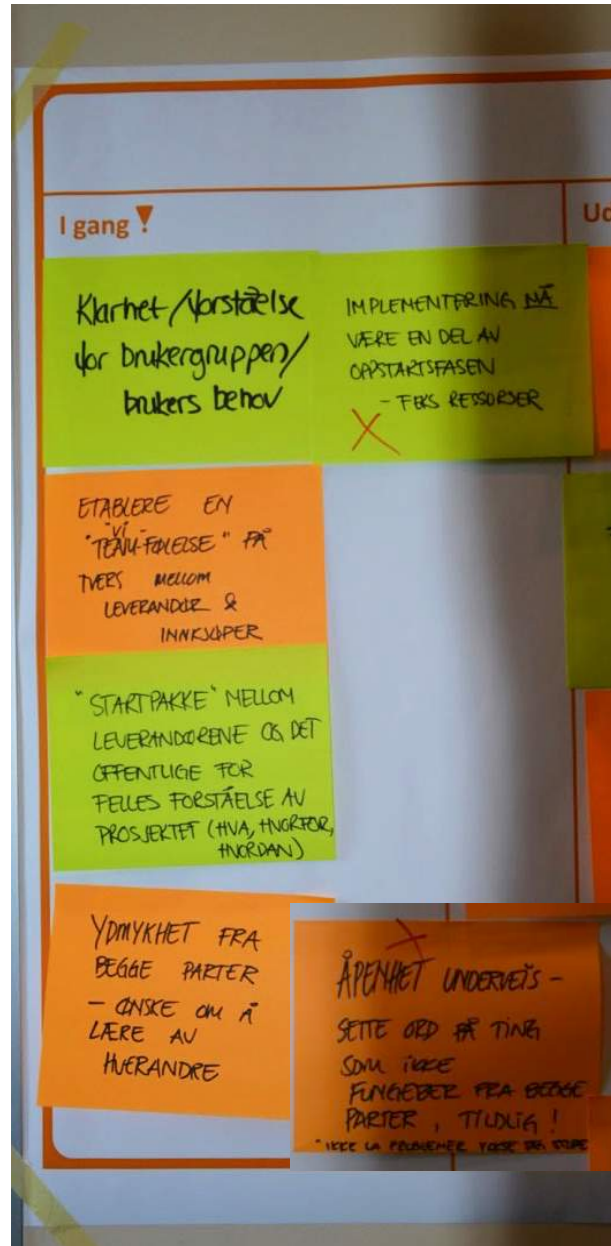 I gang
Ud
Klarhet/forståelse
for brukergruppen/
brukers behov
IMPLEMENTERING MÅ
VÆRE EN DEL AV
OPPSTARTSFASEN
- F.EKS RESSURSER
ETABLERE EN
"VI-
"TEAM-FØLELSE" PÅ
TVERS MELLOM
LEVERANDØR &
INNKJØPER
"STARTPAKKE" MELLOM
LEVERANDØRENE OG DET
OFFENTLIGE FOR
FELLES FORSTÅELSE AV
PROSJEKTET (HVA, HVORFOR,
HVORDAN)
YDMYKHET FRA
BEGGE PARTER
- ØNSKE OM Å
LÆRE AV
HVERANDRE
ÅPENHET UNDERVEIS -
SETTE ORD PÅ TING
SOM IKKE
FUNGERER FRA BEGGE
PARTER, TIDLIG!
*IKKE LA PROBLEMER VOKSE SEG STORE